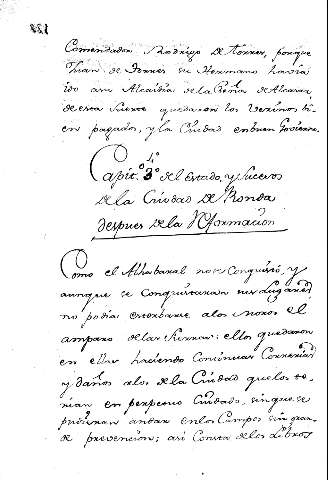 Comendador Rodrigo de torres, porque
Juan de Torres su Hermano havia
ido ... Alcaidia de la ... de Alcaraz
de esta suerte quedaron los vecinos bi-
en pagados, y la Ciudad en buen Govierno.
Capit.º 3º 4º del estado, y sucesos
de la Ciudad de Ronda
despues de la Reformacion
Como el Alhabaral no se Conquistó, y
aunque se Conquistaran sus Lugares
no podia estorbarse a los moros el
amparo de las sierras: ellos quedaron
en ellas haciendo Continuas Correrias
y daños a los de la Ciudad que los te-
nian en perpetuo Cuidado, sin que se
pudieran andar en los Campos sin gran-
de prevencion; asi Consta de los Libros